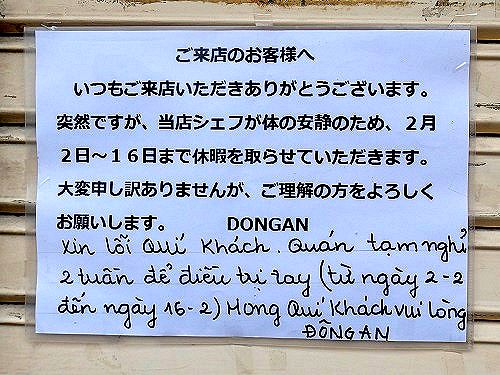 ご来店のお客様へ
いつもご来店いただきありがとうございます。
突然ですが、当店シェフが体の安静のため、２月
２日～１６日まで休暇を取らせていただきます。
大変申し訳ありませんが、ご理解の方をよろしく
お願いします。 DONGAN
Xin lỗi Quí Khách. Quán tạm nghỉ
2 tuần để điều trị tay (từ ngày 2-2
đến ngày 16-2) Mong Quí Khách vui lòng
ĐÔNGAN